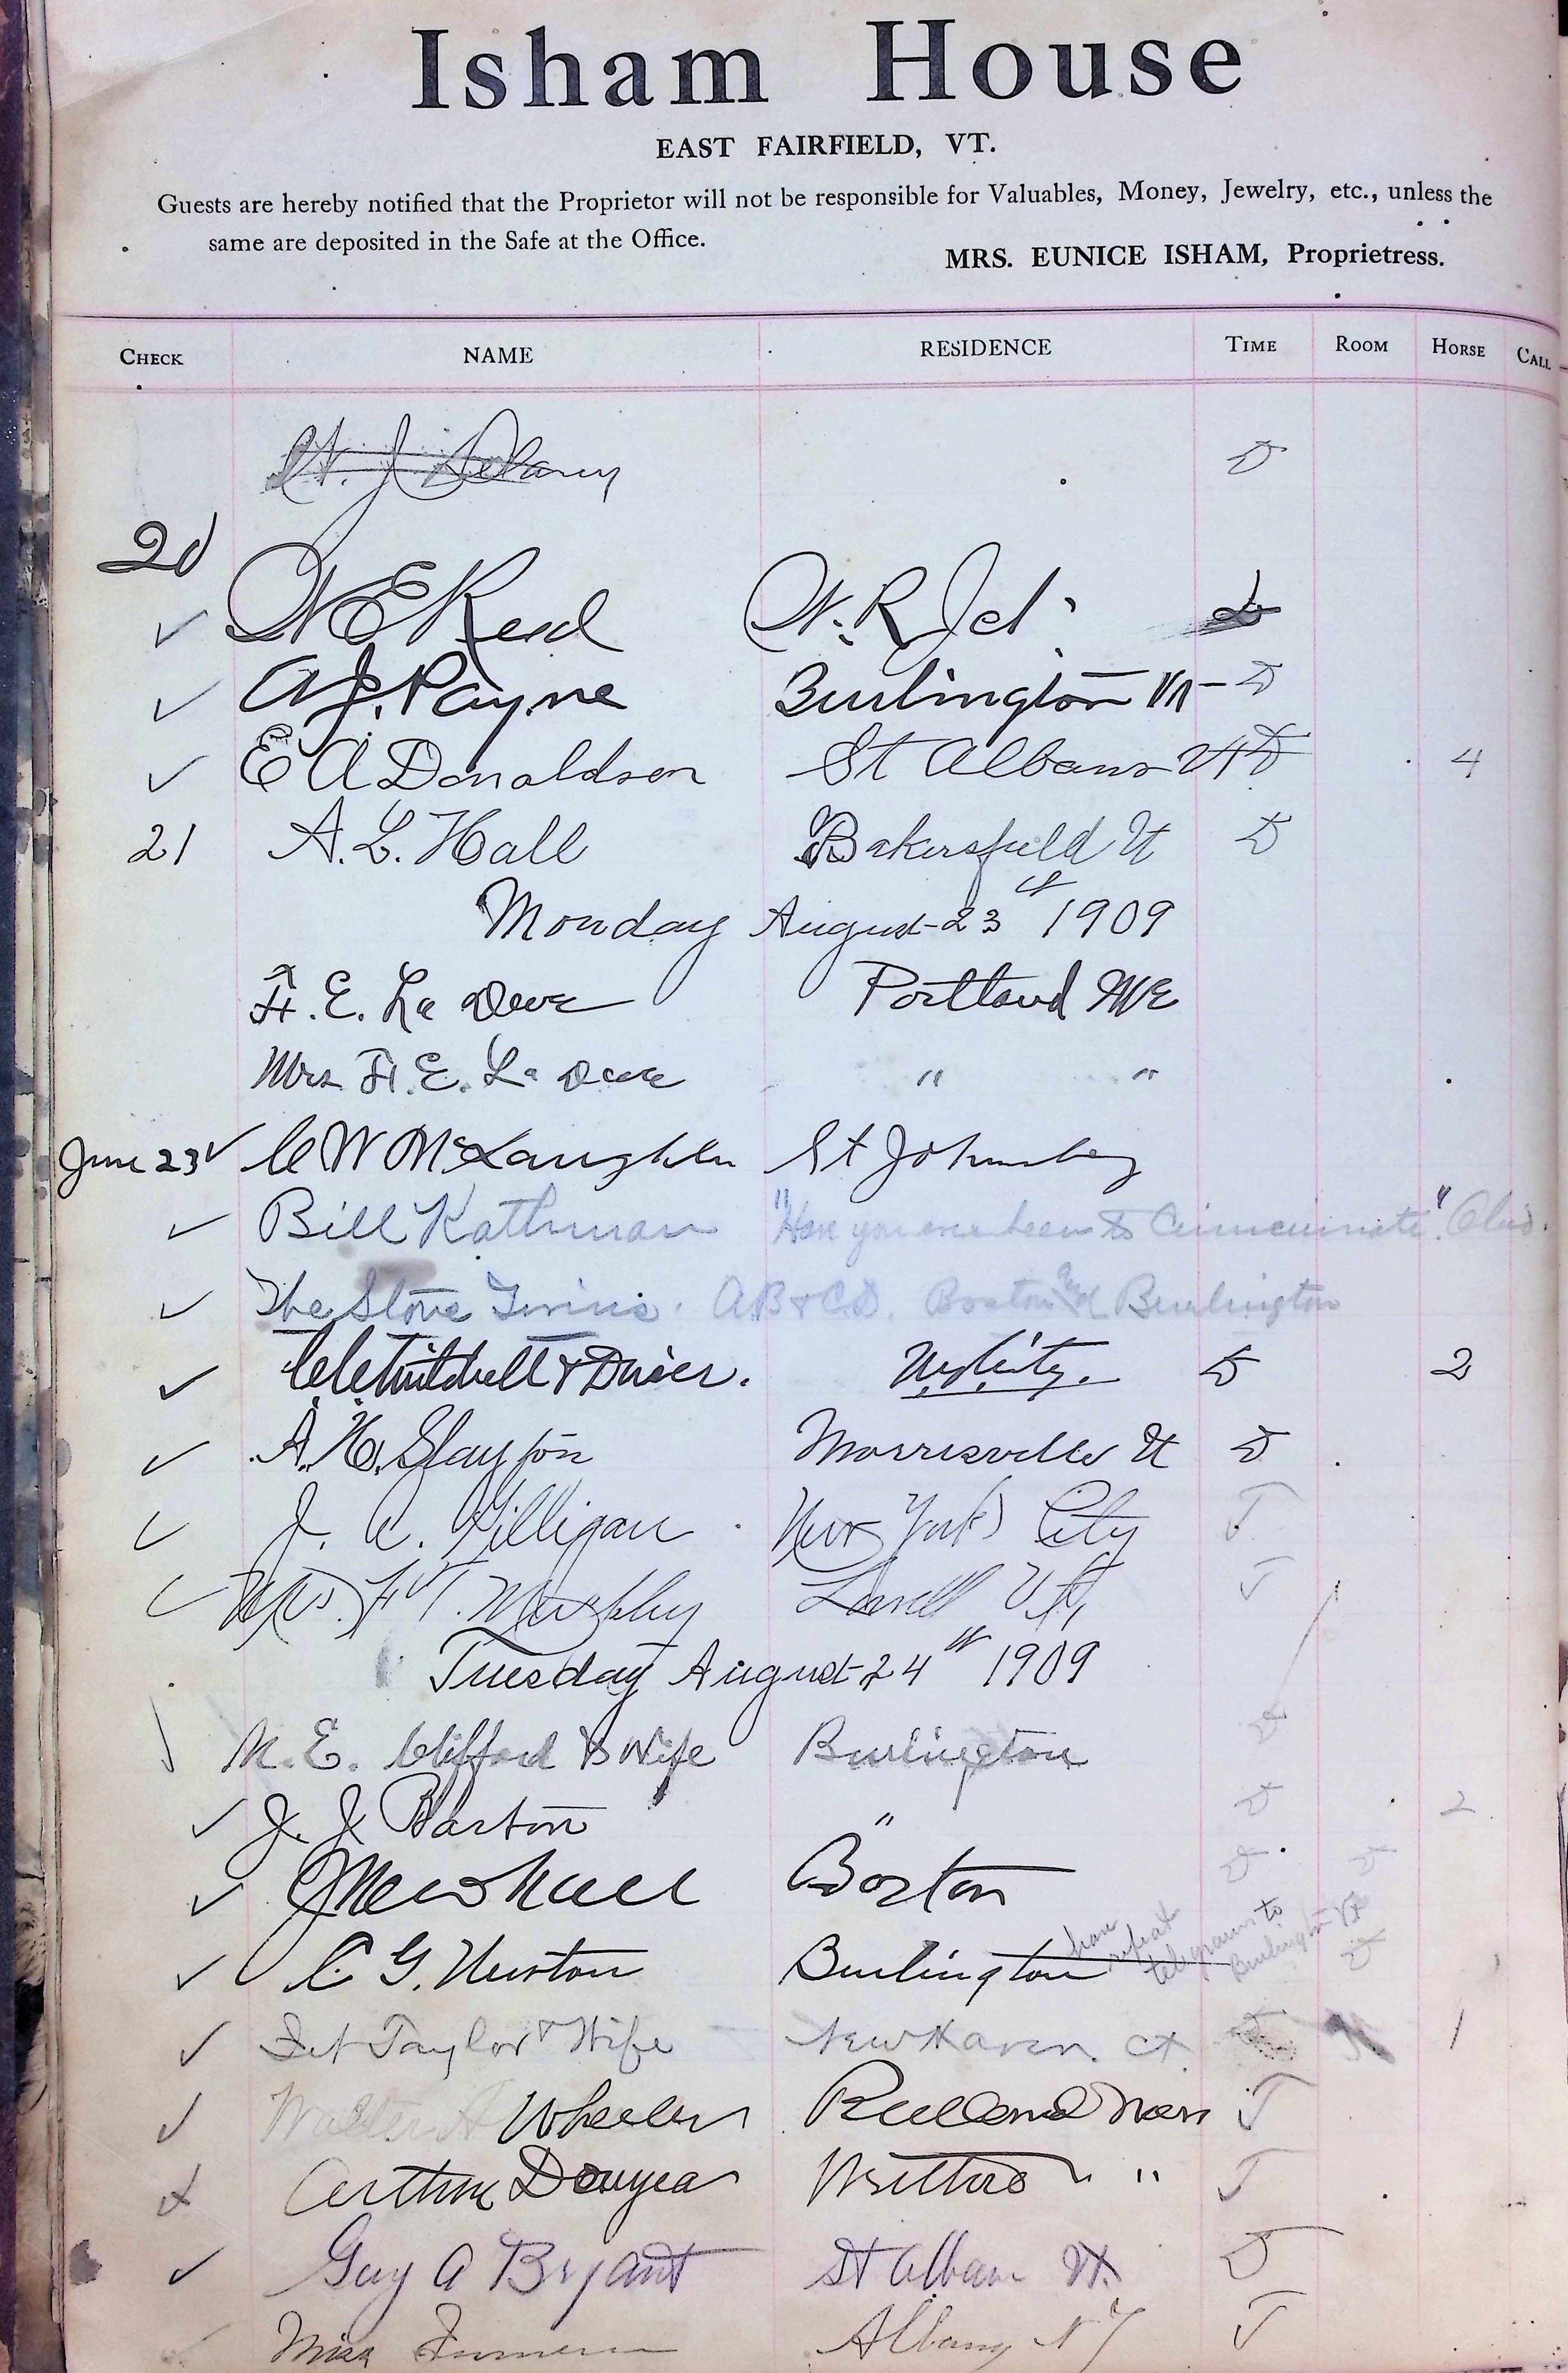 Isham House
EAST FAIRFIELD, VT.
Guests are hereby notified that the Proprietor will not be responsible for Valuables, Money, Jewelry, etc., unless the
same are deposited in the Safe at the Office.
MRS. EUNICE ISHAM, Proprietress.
CHECK NAME RESIDENCE TIME ROOM HORSE CALL
J Delaney D
20
E Reid W. R Jct.
A J. Payne Burlington Vt D
E A Donaldson St Albans Vt D 4
21 A. L. Hall Bakersfield Vt D
Monday August 23 1909
F. E. La Portland ME
Mrs F. E. La " "
June 23 C W McLaughlin St Johnsbury
Bill Kathman "Have you ever been to Cincinnati". Ohio.
The Stove Twins. AB & CD. Boston and Burlington
Mitchell & Driver. D 2
A. H. Slayton Morrisville Vt D
J. A. Gilligan New York City T
Mrs. F. T. Murphy Lowell Vt, T
Tuesday August 24th 1909
M. E. Clifford & Wife Burlington D
J. J. Barton " D 2
J Newhall Boston D D
C. G. Burlington have repeat telegrams to Burlington Vt D
Taylor & Wife New Haven. Ct 1
Walter A Wheeler Mass T
Arthur " " T
Guy A Bryant St Albans Vt. D
Miss Albany N Y T